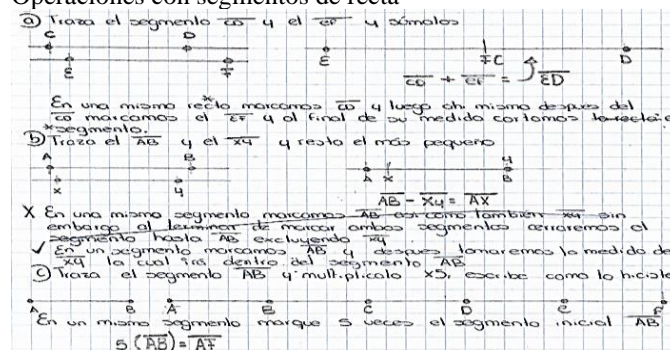 Operaciones con segmentos de recta
a) Traza el segmento CD y el EF y súmalos
C D
E F
E FC D
CD + EF = ED
En una misma recta marcamos CD y luego ahi mismo despues del
CD marcamos el EF y al final de su medida cortamos la recta
*segmento.
b) Traza el AB y el XY y resta el más pequeño
A B
X Y
A X Y B
AB - XY = AX
X En una misma segmento marcamos AB así como también XY sin
embargo al terminar de marcar ambos segmentos cerraremos el
segmento hasta AB excluyendo XY
✓ En un segmento marcamos AB y despues tomaremos la medida de
XY la cual irá dentro del segmento AB
c) Traza el segmento AB y multiplicalo x5, escribe como lo hiciste
A B A B C D E F
En un mismo segmento marque 5 veces el segmento inicial AB
5 (AB) = AF